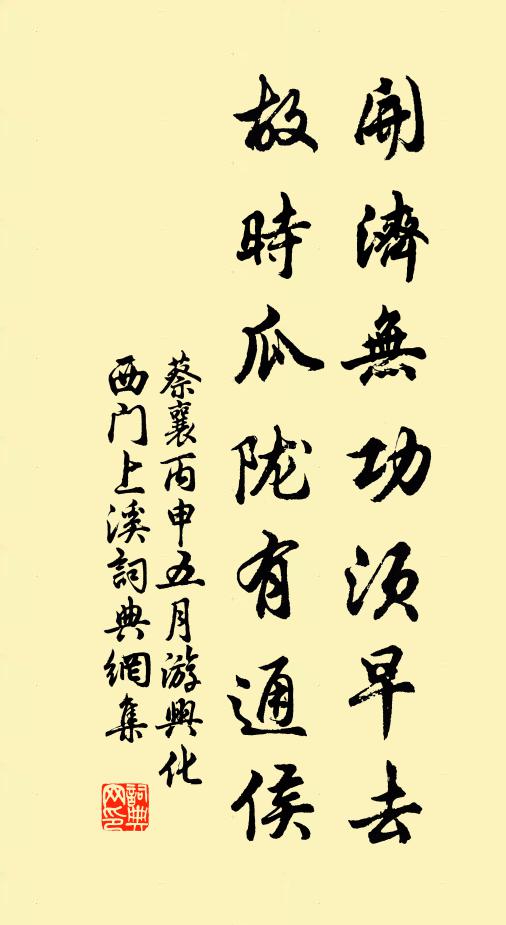 開濟無功須早去
故時瓜陇有通侯
蔡襄丙申五月游興化
西门上溪詞典網集
詞典网印